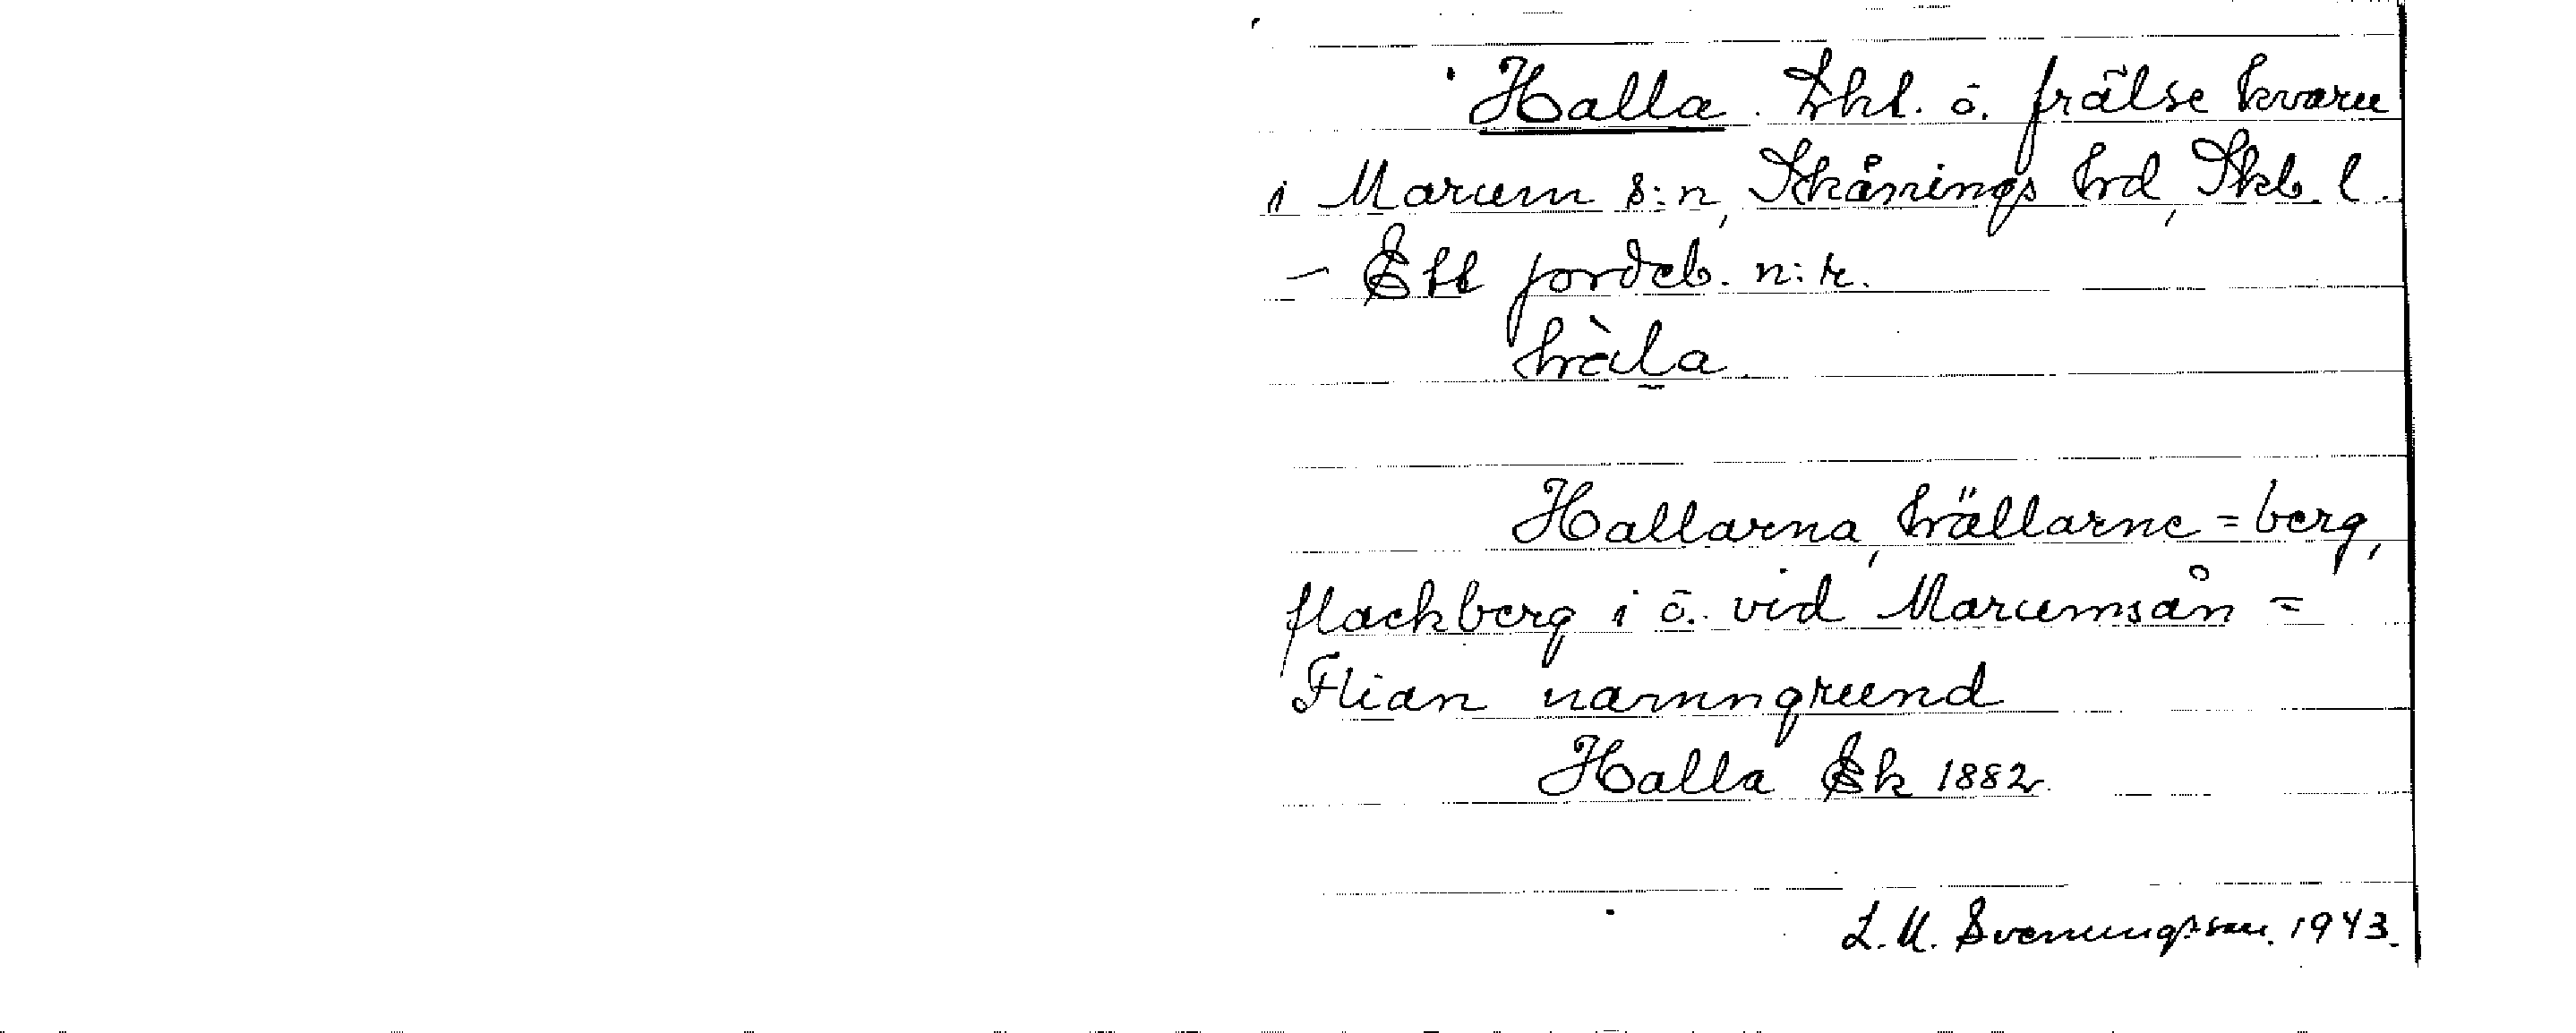 Halla. Skt. o. frälse kvarn
i Marum s:n, Skånings hrd, Skb. l.
– Ett jordeb. n:r.
hàla
Hallarna, hällarne = berg,
flackberg i ö. vid Marumsån =
Flian namngrund
Halla Ek 1882
L. M. Svenungsson. 1943.